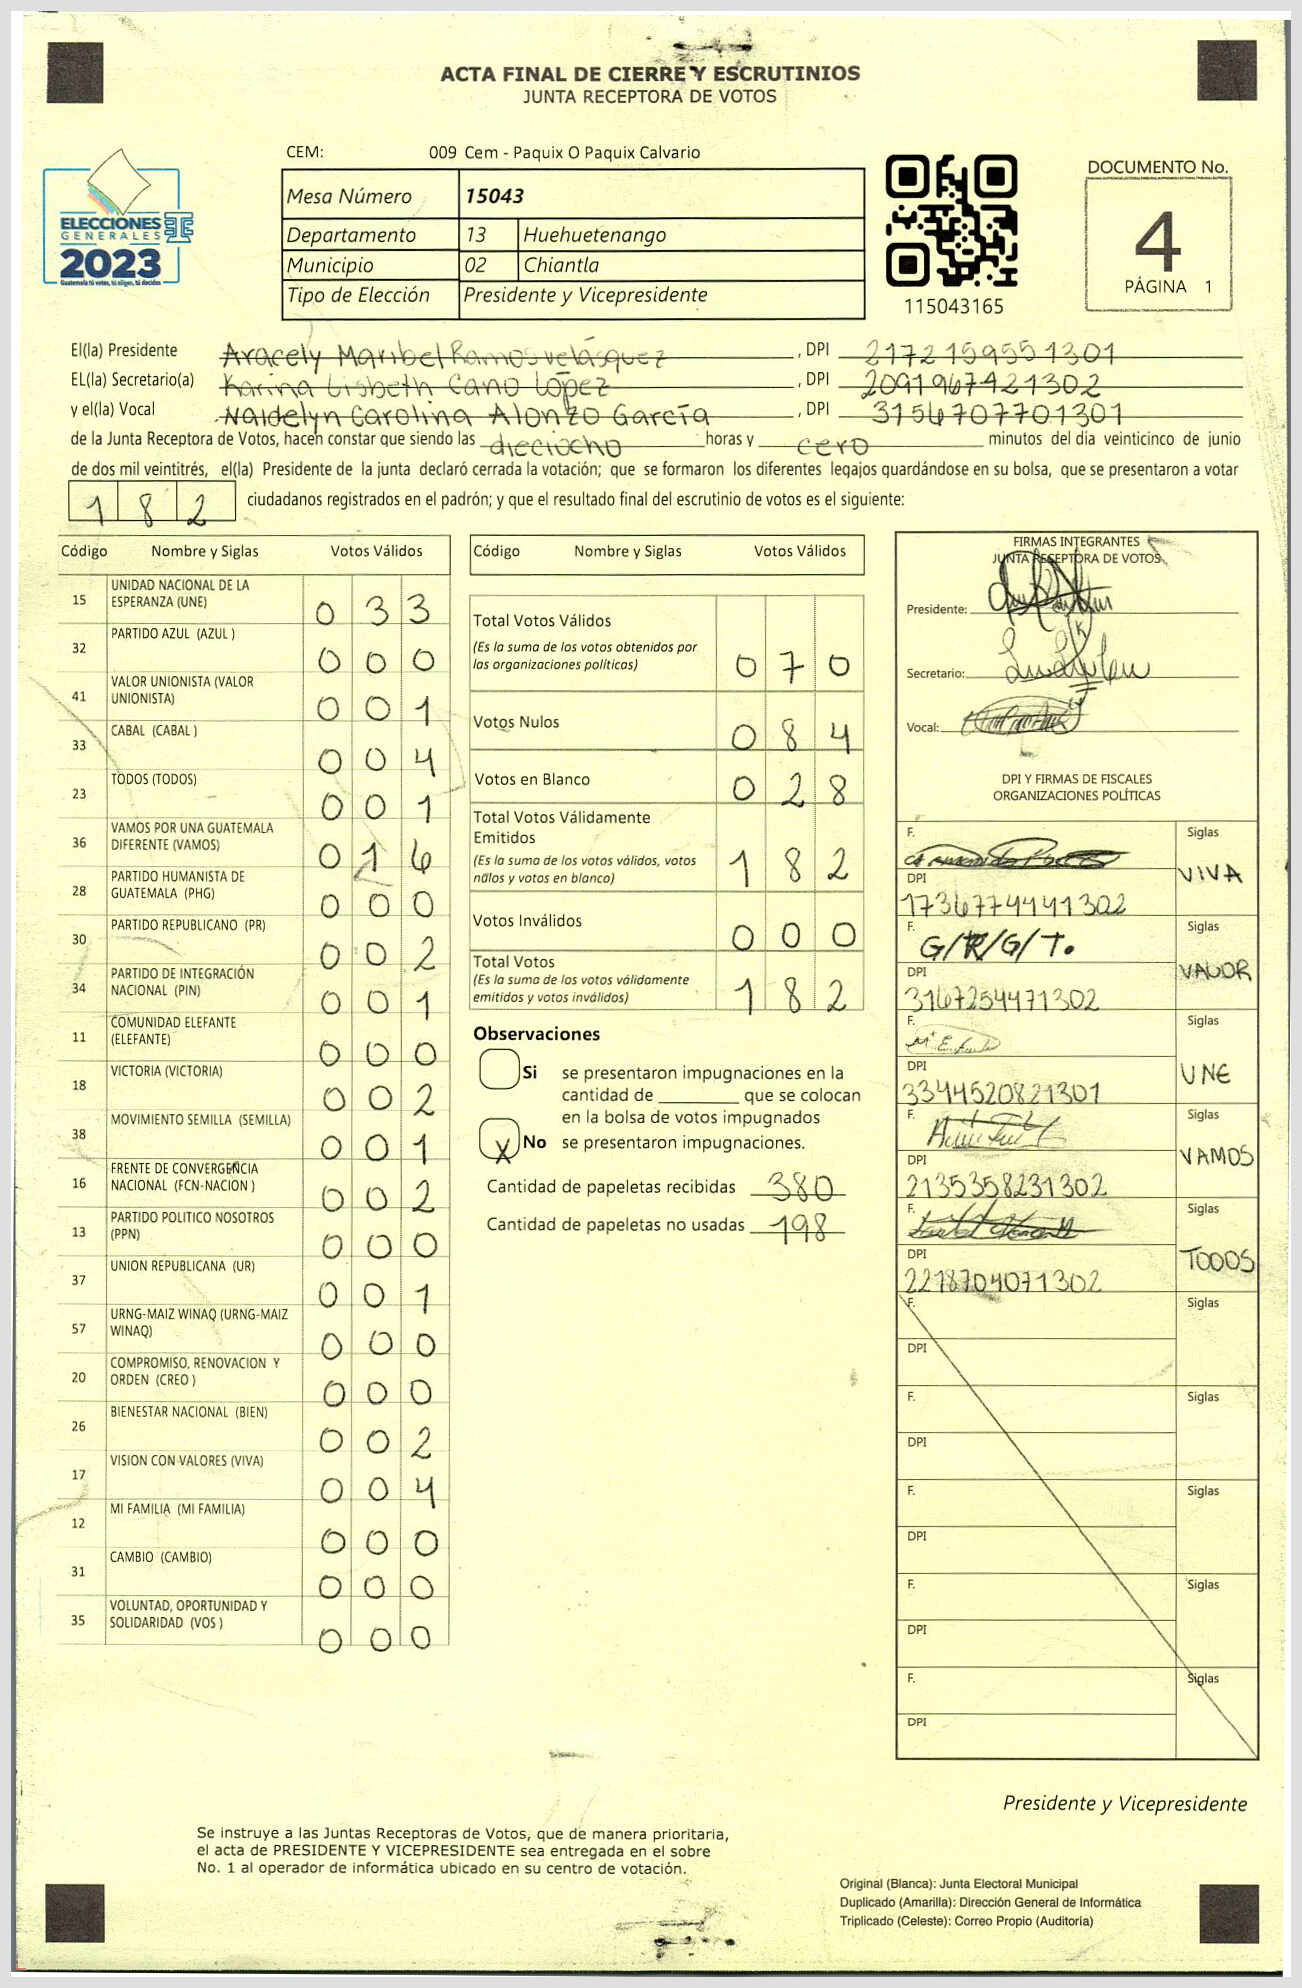 ACTA FINAL DE CIERRE Y ESCRUTINIOS
JUNTA RECEPTORA DE VOTOS
CEM: 009 Cem - Paquix O Paquix Calvario
ELECCIONES
GENERALES
2023
Guatemala tú votas, tú eliges, tú decides
Mesa Número 15043
Departamento 13 Huehuetenango
Municipio 02 Chiantla
Tipo de Elección Presidente y Vicepresidente
115043165
DOCUMENTO No.
4
PÁGINA 1
El(la) Presidente Aracely Maribel Ramos velásquez, DPI 2172159551301
EL(la) Secretario(a) Karina Lisbeth Cano López, DPI 2091967421302
y el(la) Vocal Naidelyn Carolina Alonzo García, DPI 3156707701301
de la Junta Receptora de Votos, hacen constar que siendo las dieciocho horas y cero minutos del día veinticinco de junio
de dos mil veintitrés, el(la) Presidente de la junta declaró cerrada la votación; que se formaron los diferentes legajos guardándose en su bolsa, que se presentaron a votar
182 ciudadanos registrados en el padrón; y que el resultado final del escrutinio de votos es el siguiente:
Código Nombre y Siglas Votos Válidos
15 UNIDAD NACIONAL DE LA ESPERANZA (UNE) 033
32 PARTIDO AZUL (AZUL ) 000
41 VALOR UNIONISTA (VALOR UNIONISTA) 001
33 CABAL (CABAL ) 004
23 TODOS (TODOS) 001
36 VAMOS POR UNA GUATEMALA DIFERENTE (VAMOS) 016
28 PARTIDO HUMANISTA DE GUATEMALA (PHG) 000
30 PARTIDO REPUBLICANO (PR) 002
34 PARTIDO DE INTEGRACIÓN NACIONAL (PIN) 001
11 COMUNIDAD ELEFANTE (ELEFANTE) 000
18 VICTORIA (VICTORIA) 002
38 MOVIMIENTO SEMILLA (SEMILLA) 001
16 FRENTE DE CONVERGENCIA NACIONAL (FCN-NACION ) 002
13 PARTIDO POLITICO NOSOTROS (PPN) 000
37 UNION REPUBLICANA (UR) 001
57 URNG-MAIZ WINAQ (URNG-MAIZ WINAQ) 000
20 COMPROMISO, RENOVACION Y ORDEN (CREO ) 000
26 BIENESTAR NACIONAL (BIEN) 002
17 VISION CON VALORES (VIVA) 004
12 MI FAMILIA (MI FAMILIA) 000
31 CAMBIO (CAMBIO) 000
35 VOLUNTAD, OPORTUNIDAD Y SOLIDARIDAD (VOS ) 000
Código Nombre y Siglas Votos Válidos
Total Votos Válidos 070
(Es la suma de los votos obtenidos por
las organizaciones políticas)
Votos Nulos 084
Votos en Blanco 028
Total Votos Válidamente
Emitidos 182
(Es la suma de los votos válidos, votos
nulos y votos en blanco)
Votos Inválidos 000
Total Votos 182
(Es la suma de los votos válidamente
emitidos y votos inválidos)
Observaciones
Si se presentaron impugnaciones en la
cantidad de ________ que se colocan
en la bolsa de votos impugnados
X No se presentaron impugnaciones.
Cantidad de papeletas recibidas 380
Cantidad de papeletas no usadas 198
FIRMAS INTEGRANTES
JUNTA RECEPTORA DE VOTOS
Presidente:
Secretario:
Vocal:
DPI Y FIRMAS DE FISCALES
ORGANIZACIONES POLÍTICAS
F. Siglas VIVA
DPI 1736774441302
F. G/R/G/T. Siglas VALOR
DPI 3167254471302
F. Siglas UNE
DPI 3344520821301
F. Siglas VAMOS
DPI 2135358231302
F. Siglas TODOS
DPI 2218704071302
F. Siglas
DPI
F. Siglas
DPI
F. Siglas
DPI
F. Siglas
DPI
F. Siglas
DPI
Presidente y Vicepresidente
Se instruye a las Juntas Receptoras de Votos, que de manera prioritaria,
el acta de PRESIDENTE Y VICEPRESIDENTE sea entregada en el sobre
No. 1 al operador de informática ubicado en su centro de votación.
Original (Blanca): Junta Electoral Municipal
Duplicado (Amarilla): Dirección General de Informática
Triplicado (Celeste): Correo Propio (Auditoría)